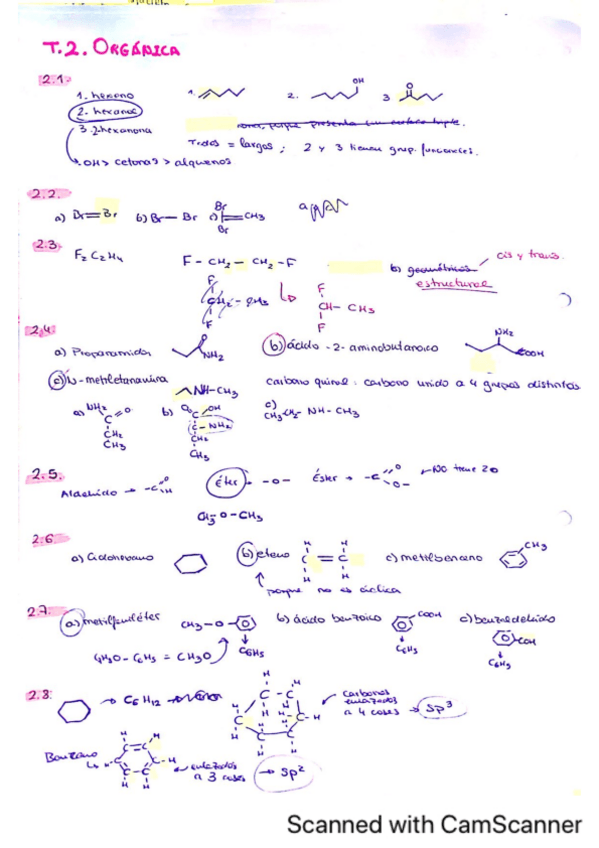 T.2. ORGÁNICA
2.1.
1. hexeno
2. hexanol
3. 2-hexanona
OH > cetonas > alquenos
1.
2. OH
3 O
Todos = largos ; 2 y 3 tienen grup. funcionales.
2.2.
a) Br=Br b) Br-Br c) Br CH3 Br
2.3.
F2 C2 H4 F - CH2 - CH2 - F
b) geométricos cis y trans.
estructural
F
CH - CH3
F
2.4.
a) Propanamida NH2
b) ácido - 2 - aminobutanoico NH2 COOH
c) N-metiletanamina NH-CH3
carbono quiral : carbono unido a 4 grupos distintos
a) NH2 C = O CH2 CH3
b) O OH C C - NH2 CH2 CH3
c) CH3-CH2- NH - CH3
2.5.
Aldehído → -C O H Éter - O - Éster → -C O O- NO tiene 2 O
CH3-O-CH3
2.6
a) Ciclohexano b) eteno H H C = C H H c) metilbenceno CH3
porque no es cíclica
2.7.
a) metilfeniléter CH3 - O - b) ácido benzoico COOH c) benzaldehído COH
C6H5 C6H5 C6H5
2.8:
→ C6H12
Carbonos enlazados a 4 cosas → Sp3
Benceno
enlazados a 3 cosas → Sp2
Scanned with CamScanner